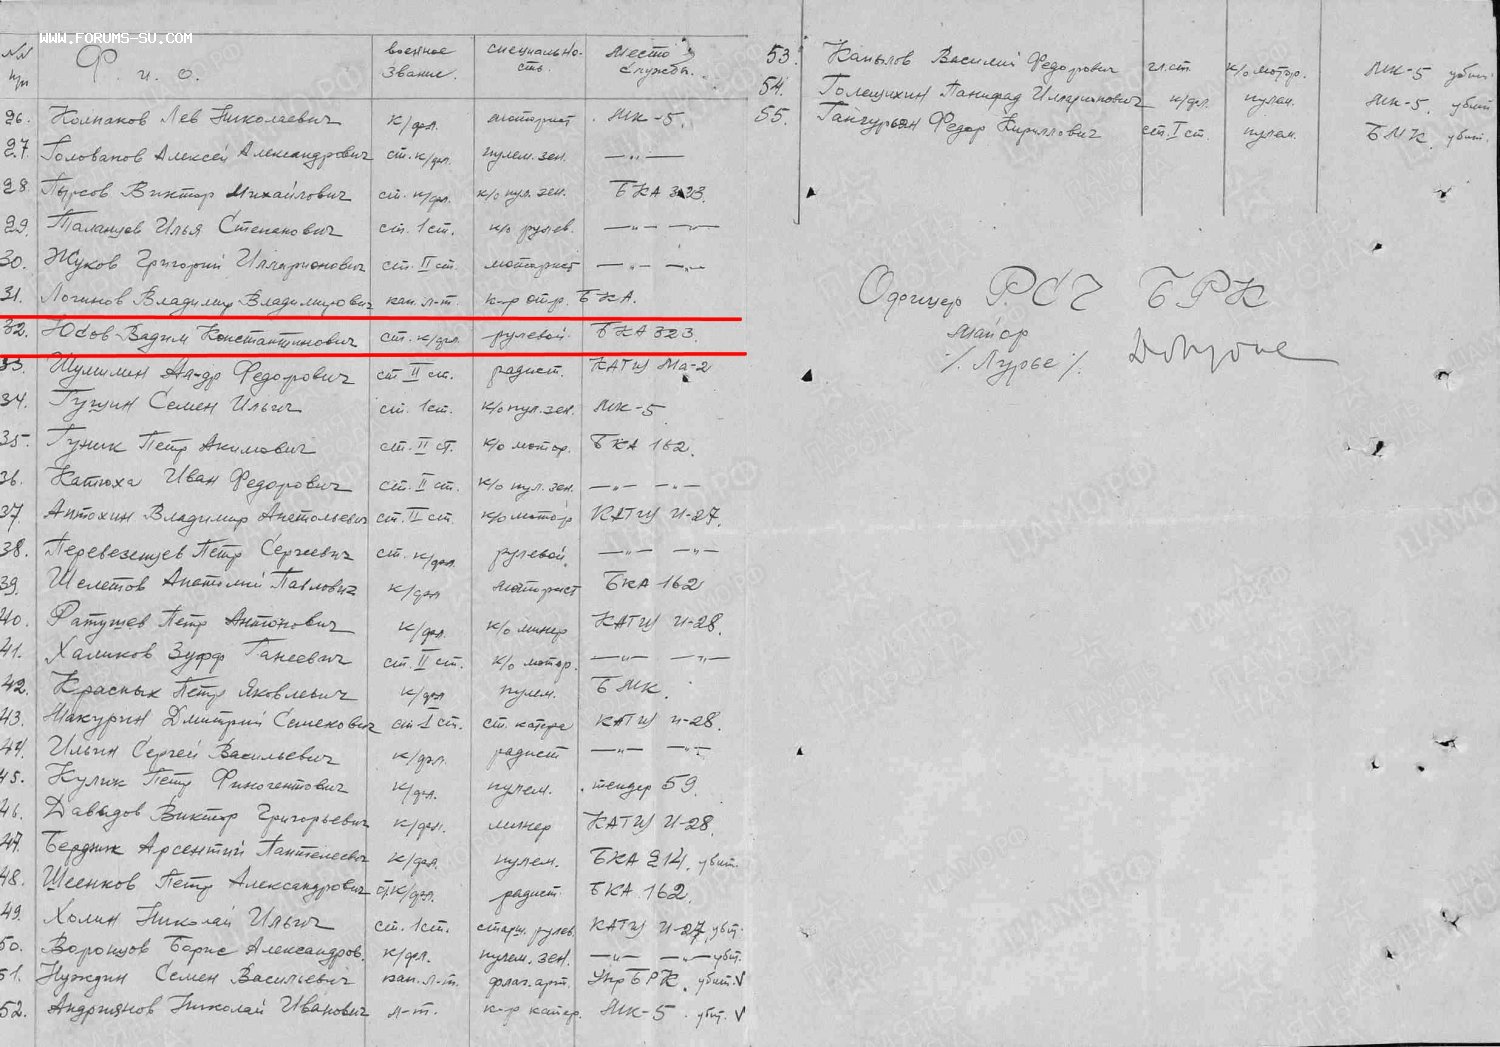 WWW.FORUMS-SU.COM
NN пп Ф. и. о. военное звание. специально-сть. Место службы.
26. Колпаков Лев Николаевич к/фл. моторист МК-5.
27. Голованов Алексей Александрович ст. к/фл. пулем. зен. —〃—
28. Пырсов Виктор Михайлович ст. к/фл. к/о пул. зен. БКА 323.
29. Таланцев Илья Степанович ст. 1 ст. к/о рулев. —〃— —〃—
30. Жуков Григорий Илларионович ст. II ст. моторист —〃— —〃—
31. Логинов Владимир Владимирович кап. л-т. к-р отр. БКА.
32. Юсов Вадим Константинович ст. к/фл. рулевой БКА 323.
33. Ал-др Федорович ст II ст. радист. КАТЩ Ма-2
34. Гущин Семен Ильич ст. 1 ст. к/о пул. зен. МК-5
35. Гуник Петр Акимович ст. II ст. к/о мотор. БКА 162.
36. Катюха Иван Федорович ст. II ст. к/о пул. зен. —〃— —〃—
37. Антохин Владимир Анатольевич ст. II ст. к/о мотор КАТЩ И-27.
38. Перевезенцев Петр Сергеевич ст. к/фл. рулевой. —〃— —〃—
39. Шелетов Анатолий Павлович к/фл моторист БКА 162
40. Ратушев Петр Антонович к/фл. к/о минер КАТЩ И-28.
41. Халиков Зуфар Ганеевич ст. II ст. к/о мотор. —〃— —〃—
42. Красных Петр Яковлевич к/фл пулем. БМК.
43. Макурин Дмитрий Семенович ст I ст. ст. катера КАТЩ И-28.
44. Ильин Сергей Васильевич к/фл. радист —〃— —〃—
45. Кулик Петр Финогентович к/фл. пулем. тендер 59.
46. Давыдов Виктор Григорьевич к/фл. минер КАТЩ И-28.
47. Бердник Арсентий Пантелеевич к/фл пулем. БКА 214. убит.
48. Шеенков Петр Александрович ст. к/фл. радист БКА 162.
49. Холин Николай Ильич ст. 1 ст. старш. рулев. КАТЩ И-27 убт.
50. Воронцов Борис Александров. к/фл. пулем. зен. —〃— —〃— убит.
51. Нуждин Семен Васильевич кап. л-т. флаг. арт. Упр БРК. убит. V
52. Андриянов Николай Иванович л-т. к-р катер. МК-5. убит. V
53. Капылов Василий Федорович гл. ст. к/о мотор. МК-5 убит.
54. Голещихин Панифад Илларионович к/фл. пулем. МК-5. убит
55. Федор Кириллович ст. I ст. пулем. БМК. убит.
Офицер РСЧ БРК
майор
/. Лурье /.